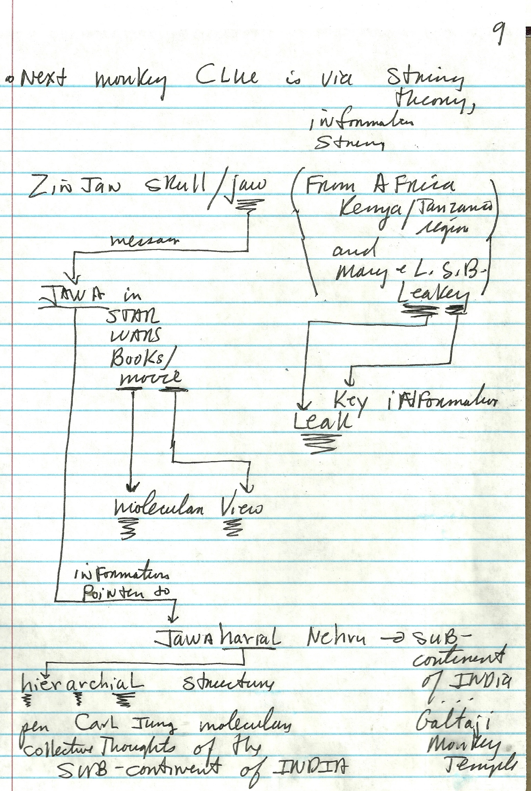 9
Next monkey Clue is via String
theory,
information
String
Zin Jan skull/jaw (From AFrica
Kenya/Tanzania
region
and
Mary & L. S. B.
Leakey)
message
JAWA in
STAR
WARS
Books/
movie
Key inFormation
Leak
molecular View
inFormation
Pointer to
Jawaharlal Nehru → SUB-
continent
of INDIA
hierarchial structure
. . . .
per Carl Jung molecular
Galtaji
collective Thoughts of the
Monkey
Temple
SUB-continent of INDIA